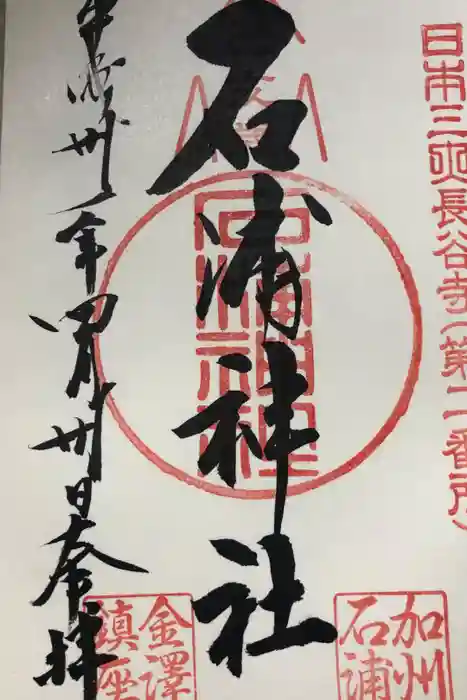 日本三大長谷寺(第二番所)
石浦神社
石浦神社
平成卅一年四月卅日奉拝
加州
石浦
金澤
鎮座